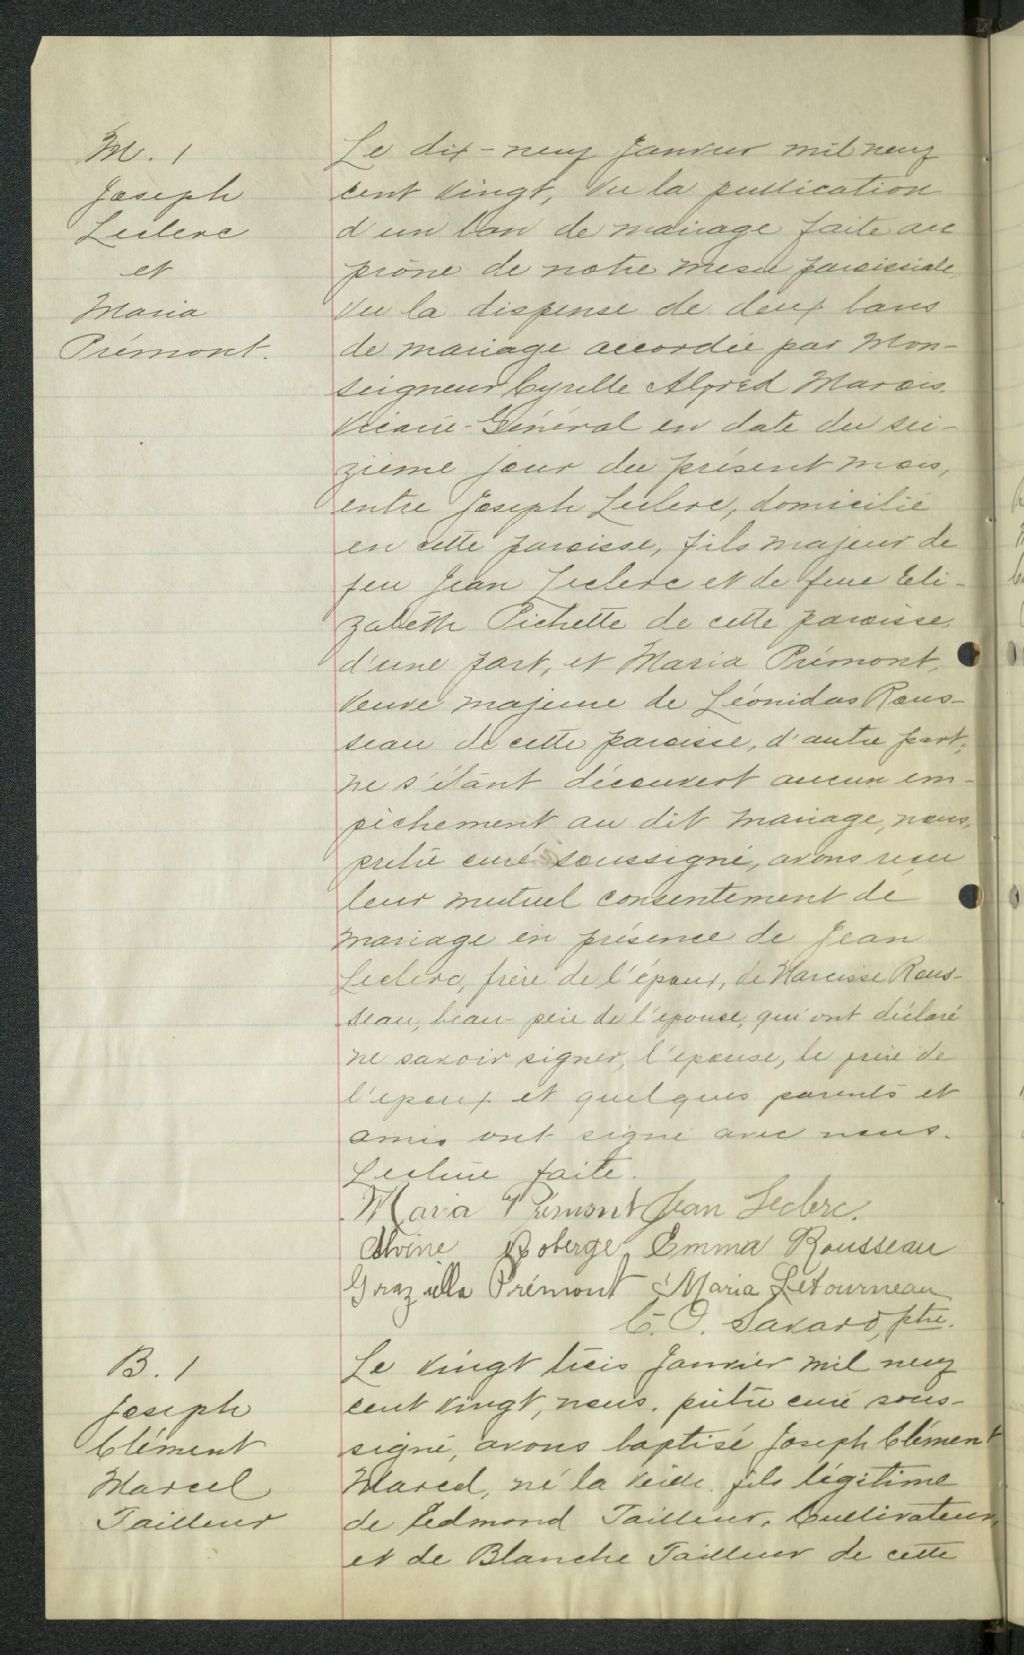 M. 1
Joseph
Leclerc
et
Maria
Prémont.
Le dix-neuf Janvier mil neuf
cent vingt, vu la publication
d'un ban de mariage faite au
prône de notre messe paroissiale,
vu la dispense de deux bans
de mariage accordée par Mon-
seigneur Cyrille Alfred Marois
Vicaire-Général en date du sei-
zième jour du présent mois,
entre Joseph Leclerc, domicilié
en cette paroisse, fils majeur de
feu Jean Leclerc et de feue Eli-
zabeth Pichette de cette paroisse,
d'une part, et Maria Prémont,
veuve majeure de Léonidas Rous-
seau de cette paroisse, d'autre part,
ne s'étant découvert aucun em-
pêchement au dit mariage, nous,
prêtre curé soussigné, avons reçu
leur mutuel consentement de
mariage en présence de Jean
Leclerc, frère de l'époux, de Narcisse Rous-
seau, beau-père de l'épouse, qui ont déclaré
ne savoir signer, l'épouse, le frère de
l'époux et quelques parents et
amis ont signé avec nous.
Lecture faite.
Maria Prémont Jean Leclerc.
Alvine Roberge, Emma Rousseau
Graziella Prémont Maria Letourneau
C. O. Savard, ptre.
B. 1
Joseph
Clément
Marcel
Tailleur
Le vingt trois Janvier mil neuf
cent vingt, nous, prêtre curé sous-
signé, avons baptisé Joseph Clément
Marcel, né la veille, fils légitime
de Edmond Tailleur, Cultivateur,
et de Blanche Tailleur de cette